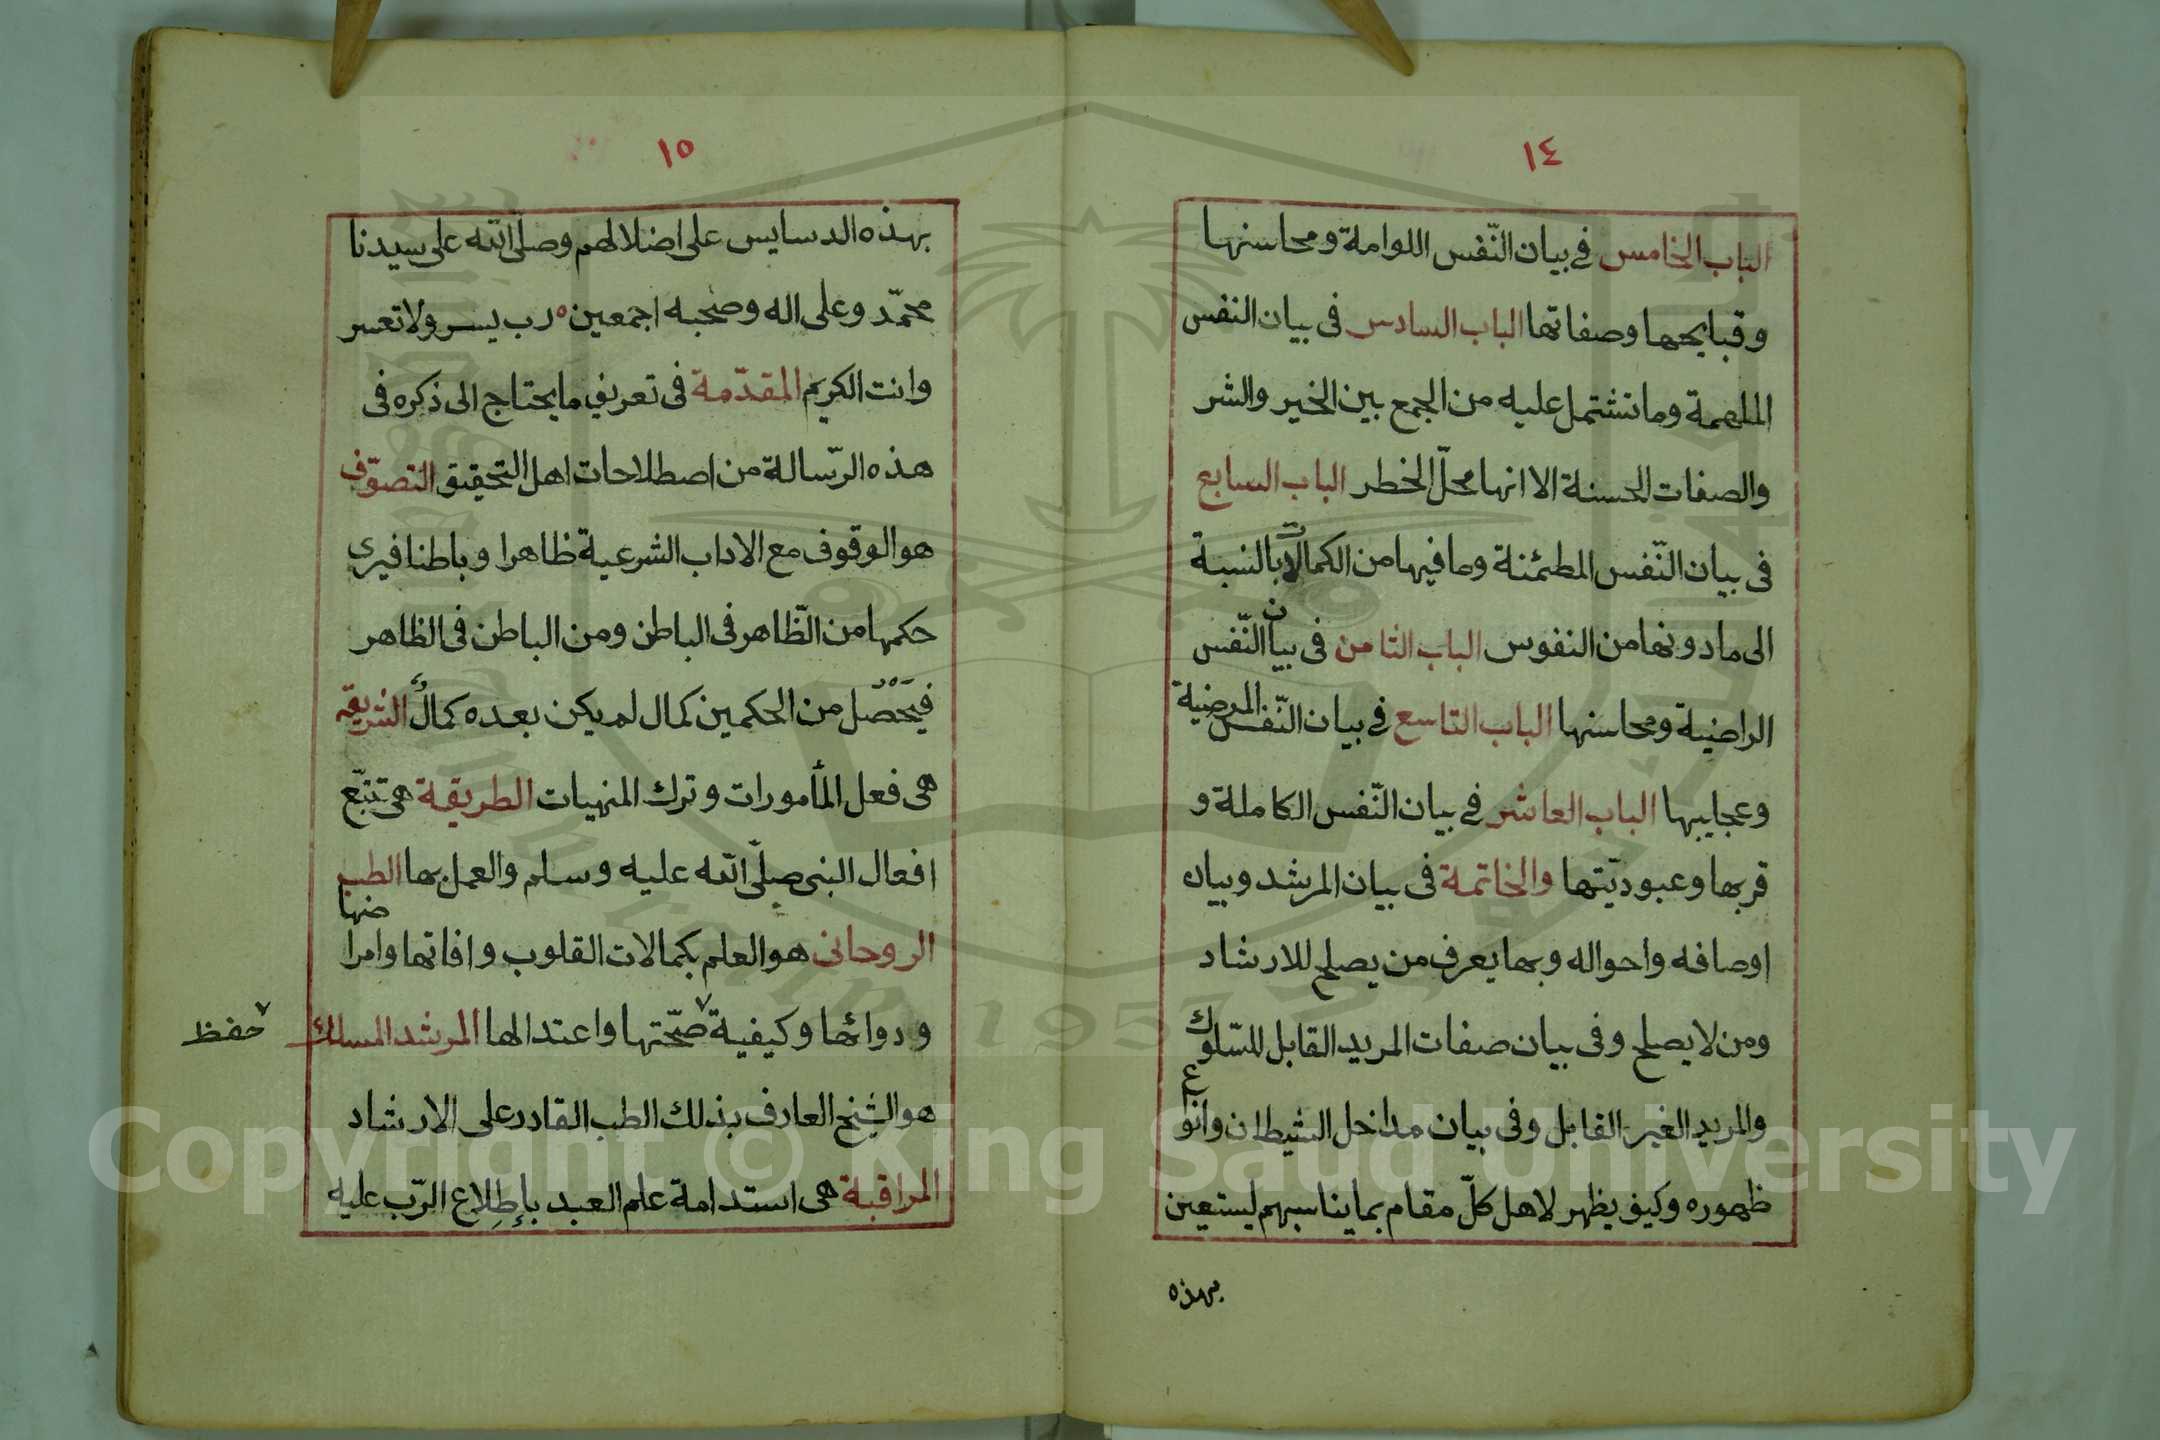 ١٤
الباب الخامس في بيان النّفس اللوامة ومحاسنها
وقبايحها وصفاتها الباب السادس في بيان النفس
الملهمة وما تشتمل عليه من الجمع بين الخير والشر
والصفات الحسنة الا انها محلّ الخطر الباب السابع
في بيان النّفس المطئمنة وما فيها من الكمالات بالنسبة
الى ما دونها من النفوس الباب الثامن في بيان النّفس
الراضية ومحاسنها الباب التاسع في بيان النّفس المرضية
وعجايبها الباب العاشر في بيان النّفس الكاملة و
قربها وعبوديّتها والخاتمة في بيان المرشد وبيان
اوصافه واحواله وبها يعرف من يصلح للارشاد
ومن لا يصلح وفي بيان صفات المريد القابل للسّلوك
والمريد الغير القابل وفي بيان مداخل الشيطان وانواع
ظهوره وكيف يظهر لاهل كلّ مقام بما يناسبهم ليستعين
بهذه
١٥
بهذه الدسايس على اضلالهم وصلّى الله على سيدنا
محمّد وعلى اله وصحبه اجمعين ٥ رب يسر ولا تعسر
وانت الكريم المقدّمة في تعريف ما يحتاج الى ذكره في
هذه الرّسالة من اصطلاحات اهل التحقيق التصوّف
هو الوقوف مع الاداب الشرعية ظاهرا وباطنا فيرى
حكمها من الظّاهر في الباطن ومن الباطن في الظاهر
فيَحْصُل من الحكمين كمال لم يكن بعده كمالٌ الشريعة
هي فعل المأمورات وترك المنهيات الطريقة هي تتبّع
افعال النبي صلّى الله عليه وسلم والعمل بها الطب
الروحاني هو العلم بكمالات القلوب وافاتها وامراضها
ودوائها وكيفية ٧ صحّتها واعتدالها المرشد المسلك
٧ حفظ
هو الشيخ العارف بذلك الطب القادر على الارشاد
المراقبة هي استدامة علم العبد بإطلاع الرّب عليه
Copyright © King Saud University